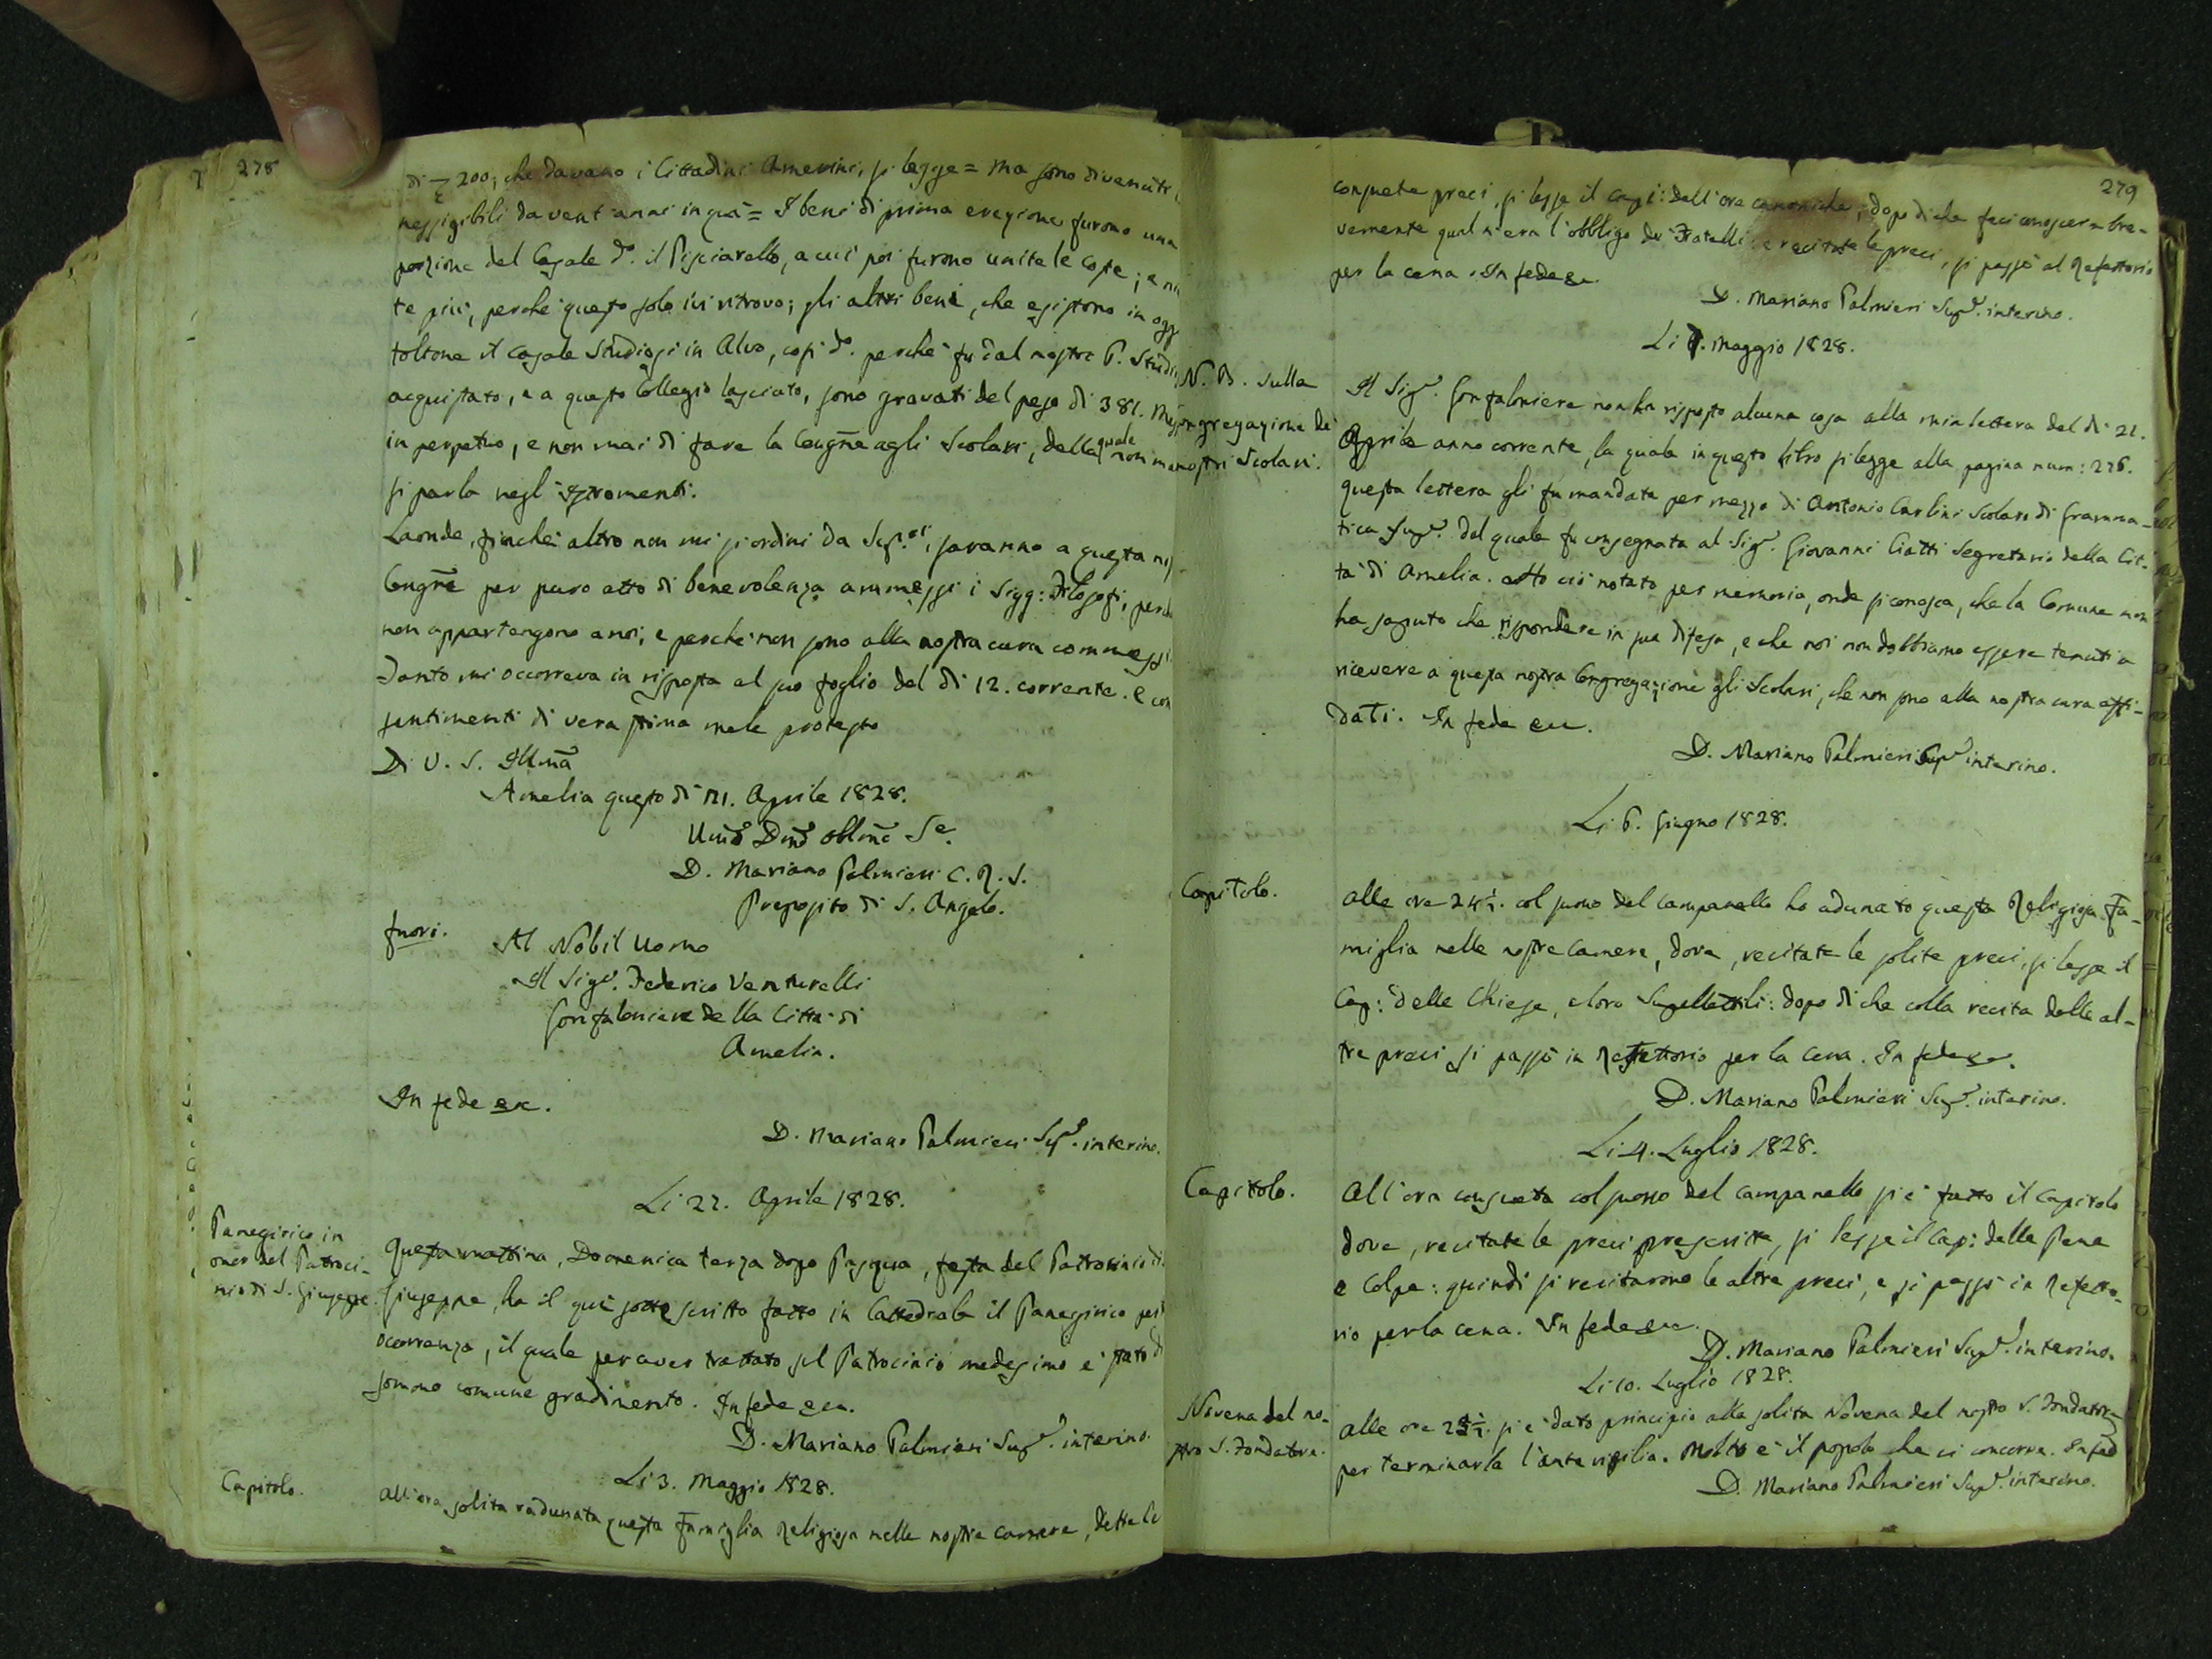 278
di 200, che davano i Cittadini Amerini, si legge = Ma sono divenuti
inesigibili da vent'anni in quà = I beni di prima erezione furono una
porzione del Casale do. il Pisciarello, a cui poi furono unite le Coste; e
te più, perche questo solo ivi ritrovo; gli altri beni, che esistono in ogg
toltone il casale Studiosi in Alvo, così do. perchè fu dal nostro P. Studi
acquistato, e a questo Collegio lasciato, sono gravati del peso di 381. Mes
in perpetuo, e non mai di fare la Congne agli Scolari, della quale non m
si parla negl'Istromenti.
Laonde, finchè altro non mi si ordini da Supri, saranno a questa
Congne per puro atto di benevolenza ammessi i Sigg: Filosofi, perchè
non appartengono a noi, e perchè non sono alla nostra cura commessi.
Tanto mi occorreva in risposta al suo foglio del dì 12. corrente. E con
sentimenti di vera stima me le protesto
Di V. S. Illma
Amelia questo dì 21. Aprile 1828.
Umo Devmo Obblmo Se.
D. Mariano Palmieri C. R. S.
Preposito di S. Angelo.
fuori.
Al Nobil Uomo
Il Sigr. Federico Venturelli
Gonfaloniere della Città di
Amelia.
In fede ec.
D. Mariano Palmieri Supr. interino.
Li 27. Aprile 1828.
Panegirico in
onor del Patroci-
nio di S. Giuseppe.
Questa mattina, Domenica terza dopo Pasqua, festa del Patrocinio di
Giuseppe, ha il qui sottoscritto fatto in Cattedrale il Panegirico per
occorrenza, il quale per aver trattato sul Patrocinio medesimo è stato di
sommo comune gradimento. In fede ec.
D. Mariano Palmieri Supr. interino.
Li 3. Maggio 1828.
Capitolo.
All'ora solita radunata questa Famiglia Religiosa nelle nostre camere, dette le
279
consuete preci, si lesse il cap: dell'ore canoniche; dopo di che feci conoscere bre-
vemente qual n'era l'obbligo de' Fratelli: e recitate le preci, si passò al Refettorio
per la cena. In fede ec.
D. Mariano Palmieri Supr. interino.
Li . Maggio 1828.
N. B. sulla
Congregazione de'
nostri Scolari.
Il Sigr. Gonfaloniere non ha risposto alcuna cosa alla mia lettera del dì 21.
Aprile anno corrente, la quale in questo Libro si legge alla pagina num: 276.
questa lettera gli fu mandata per mezzo di Antonio Carlini Scolaro di Gramma-
tica Supr. dal quale fu consegnata al Sigr. Giovanni Ciatti Segretario della Cit-
tà di Amelia. Ho ciò notato per memoria, onde si conosca, che la Comune non
ha saputo che rispondere in sua difesa, e che noi non dobbiamo essere tenuti a
ricevere a questa nostra Congregazione gli Scolari, che non sono alla nostra cura affi-
dati. In fede ec.
D. Mariano Palmieri Supr interino.
Li 6. Giugno 1828.
Capitolo.
Alle ore 24½. col suono del campanello ho adunato questa Religiosa Fa-
miglia nelle nostre camere, dove, recitate le solite preci, si lesse il
Cap: delle Chiese, e loro Supellettili: dopo di che colla recita delle al-
tre preci si passò in Refettorio per la cena. In fede ec.
D. Mariano Palmieri Supr. interino.
Li 4. Luglio 1828.
Capitolo.
All'ora consueta col suono del campanello si è fatto il Capitolo
dove, recitate le preci prescritte, si lesse il Cap: delle Pene
e Colpe: quindi si recitarono le altre preci, e si passò in Refetto-
rio per la cena. In fede ec.
D. Mariano Palmieri Supr. interino.
Li 10. Luglio 1828.
Novena del no-
stro S. Fondatore.
Alle ore 23½. si è dato principio alla solita Novena del nostro S. Fondatore
per terminarla l'antevigilia. Molto è il popolo che ci concorre. In fed
D. Mariano Palmieri Supr. interino.